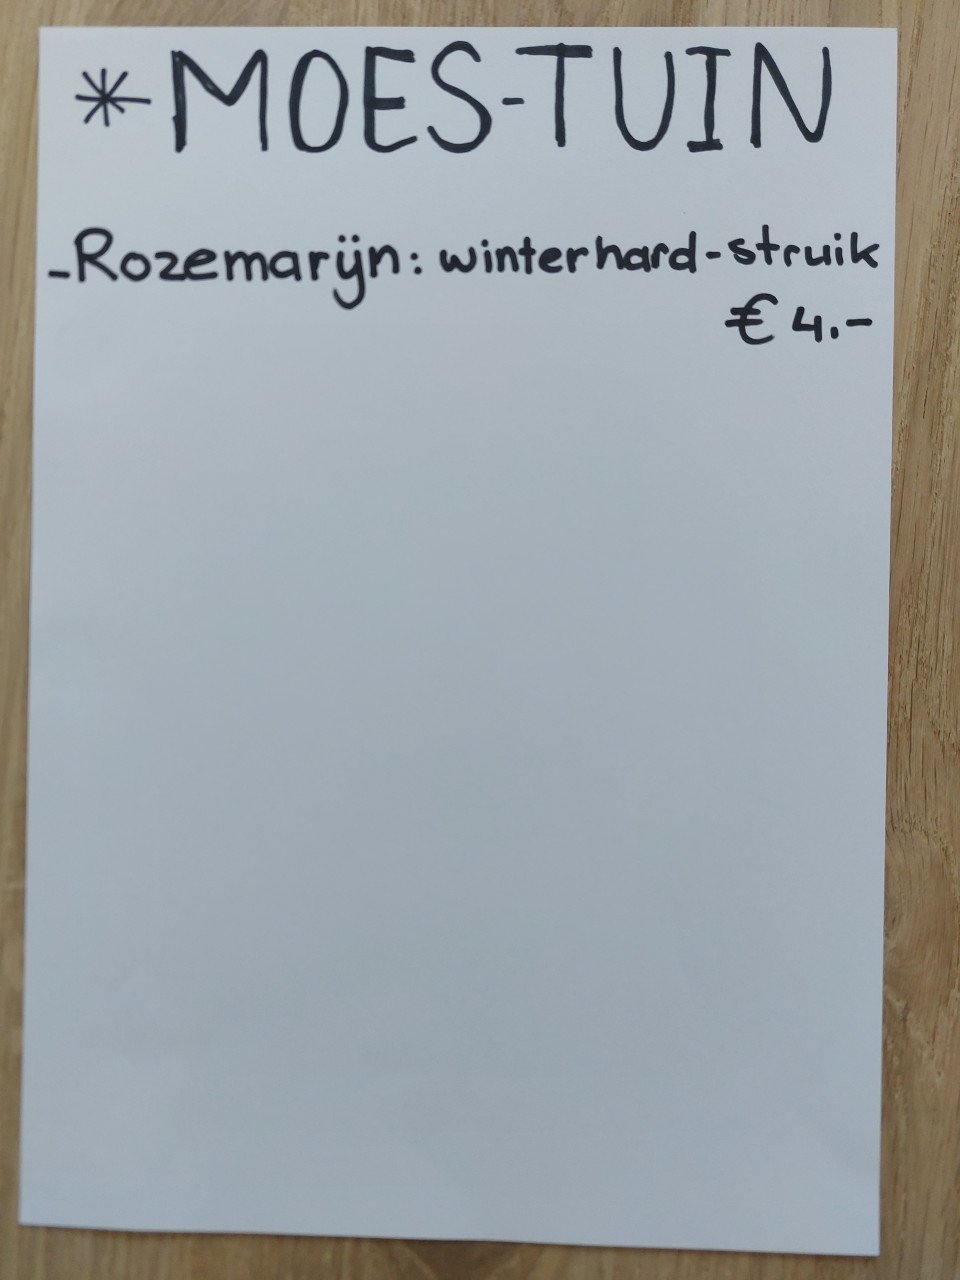 * MOES-TUIN
- Rozemarijn: winterhard-struik
€ 4.-